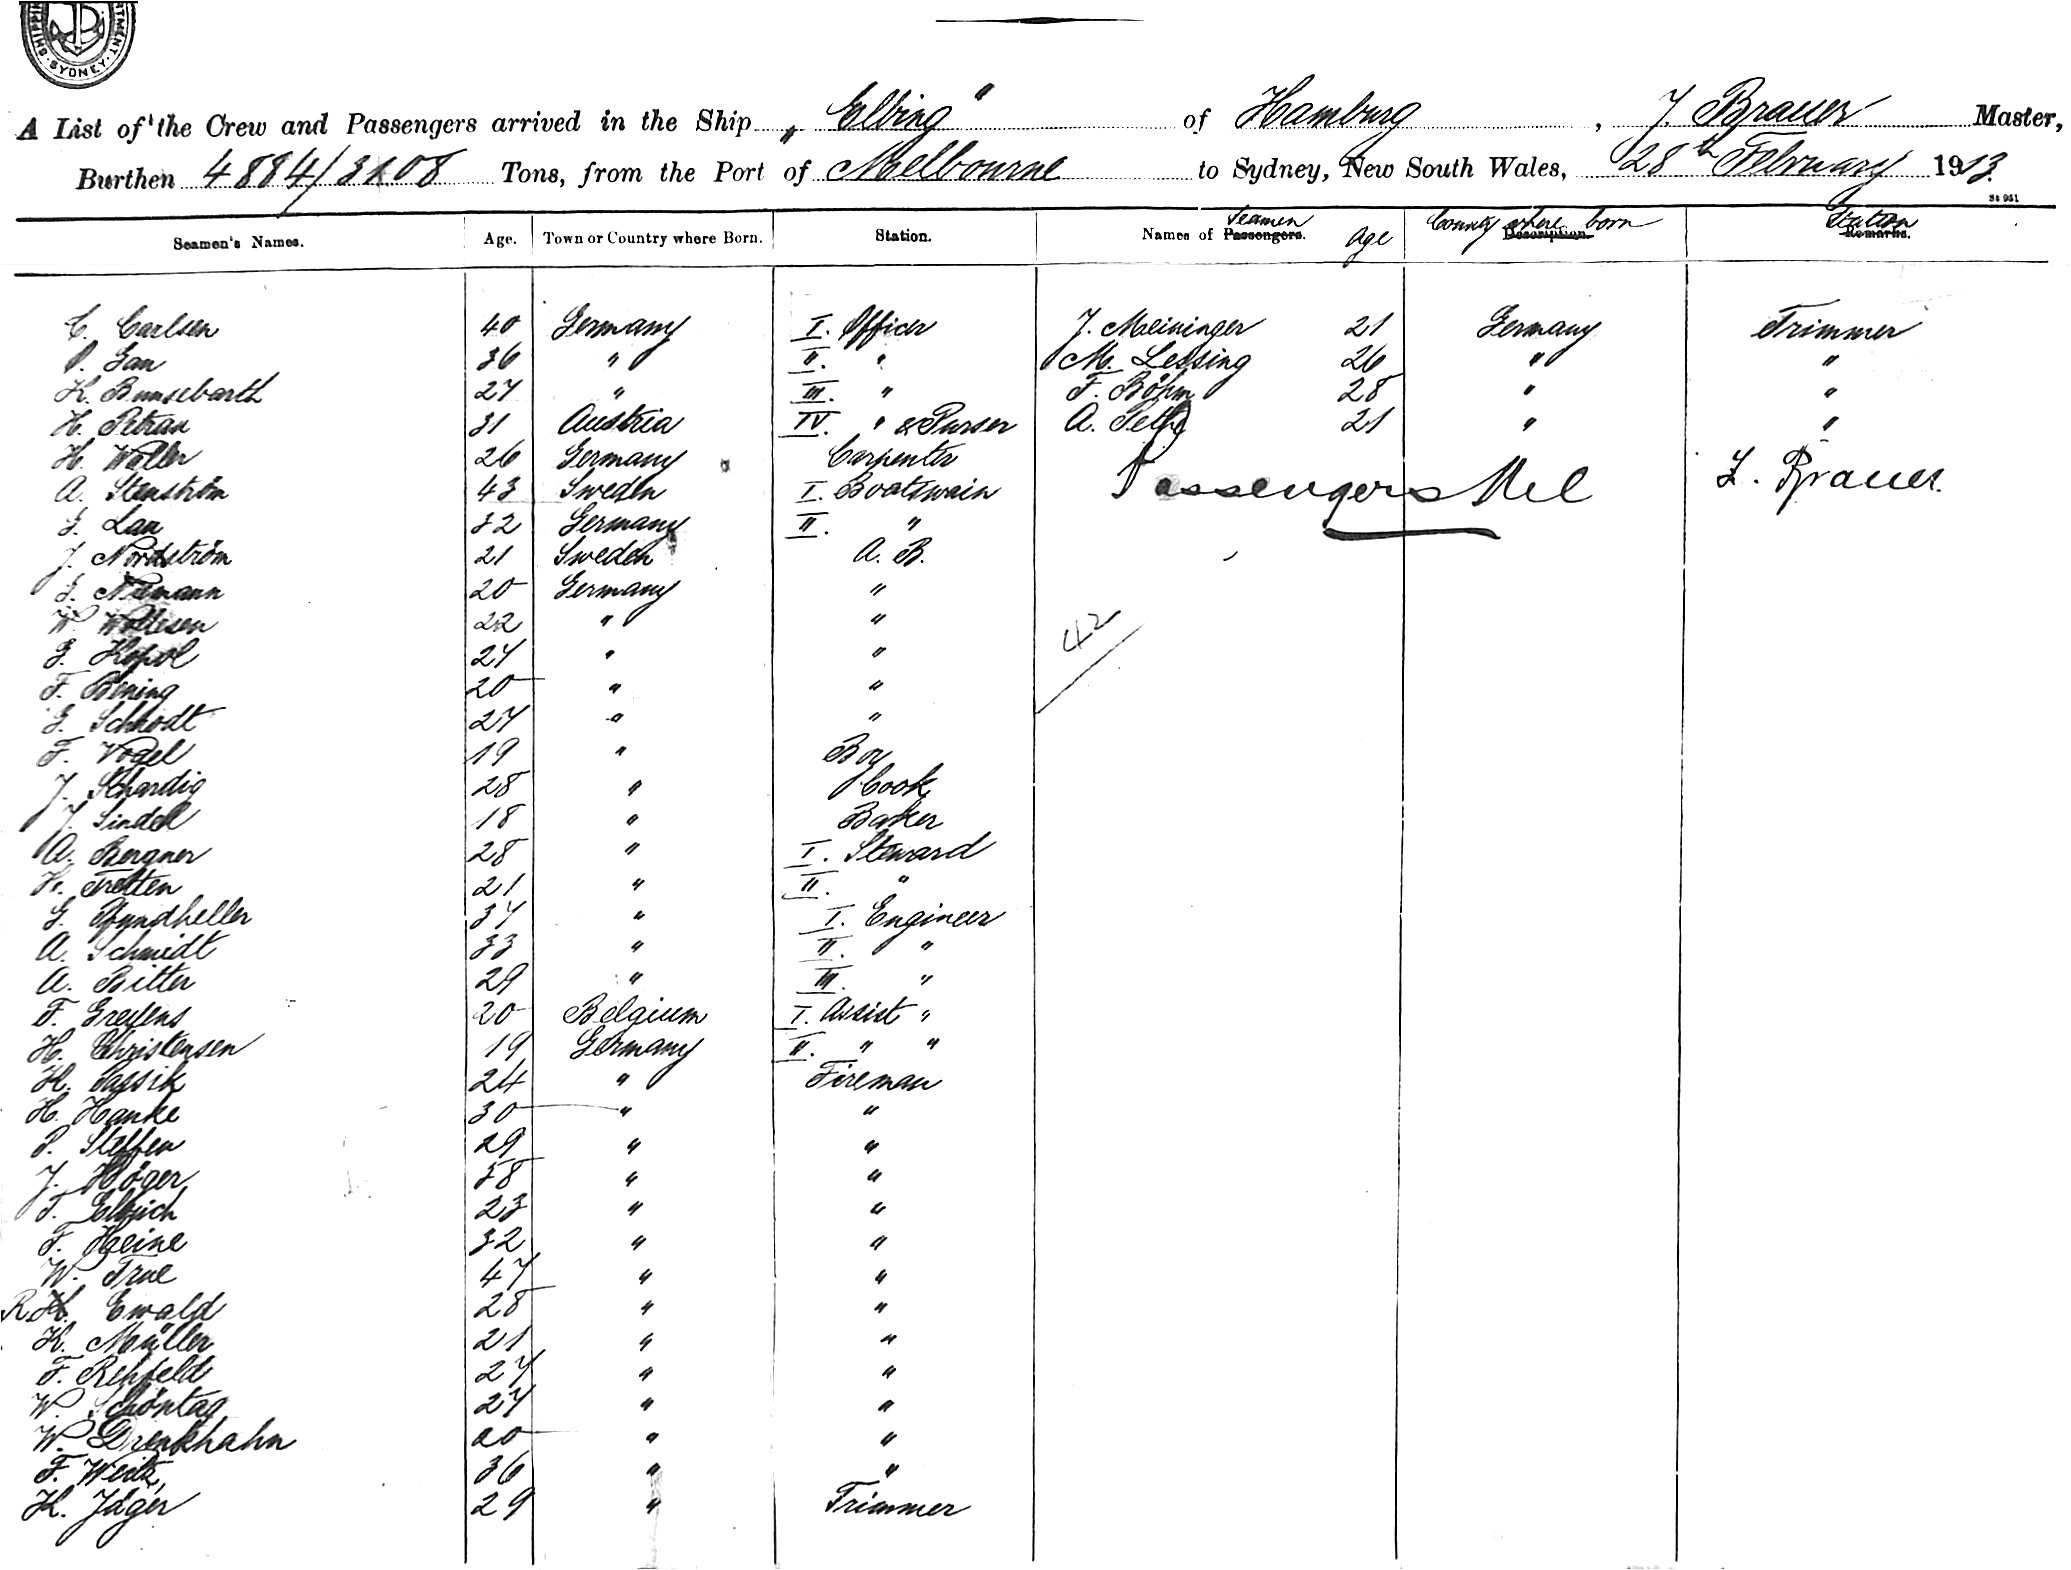 SHIPPING DEPARTMENT SYDNEY
A List of the Crew and Passengers arrived in the Ship „Elbing" of Hamburg, J. Brauer Master,
Burthen 4884/3108 Tons, from the Port of Melbourne to Sydney, New South Wales, 28th February 1913.
Seamen's Names. Age. Town or Country where Born. Station. Names of Passengers. Seamen Age Description. County where born Remarks. Station
C. Carlsen 40 Germany I. Officer J. Meininger 21 Germany Trimmer
P. Jan 36 " II. " M. Lessing 26 " "
K. Bunsebarth 27 " III. " F. Böhm 28 " "
H. Petran 31 Austria IV. " & Purser A. 21 " "
H. Woller 26 Germany Carpenter
A. Stenström 43 Sweden I. Boatswain Passengers Nil Brauer.
J. Lau 32 Germany II. "
J. Nordström 21 Sweden A. B.
J. Niemann 20 Germany "
W. Wollesen 22 " " 42
J. Kopol 27 " "
F. Bening 20 " "
J. Schrodt 27 " "
F. Vogel 19 " Boy
J. 28 " Cook
J. Lindell 18 " Baker
A. Bergner 28 " I. Steward
H. Tretten 21 " II. "
G. Pfundheller 37 " I. Engineer
A. Schmidt 33 " II. "
A. Bitter 29 " III. "
F. Grefens 20 Belgium I. Assist "
H. Christensen 19 Germany II. " "
H. Sassik 24 " Fireman
H. Hanke 30 " "
P. Steffen 29 " "
J. Höger 38 " "
F. 23 " "
F. Heine 32 " "
W. True 47 " "
R. H. Ewald 28 " "
K. Müller 21 " "
F. Rehfeldt 27 " "
W. Schöntag 27 " "
W. Drenkhahn 20 " "
F. Weitz 36 " "
H. Jäger 29 " Trimmer